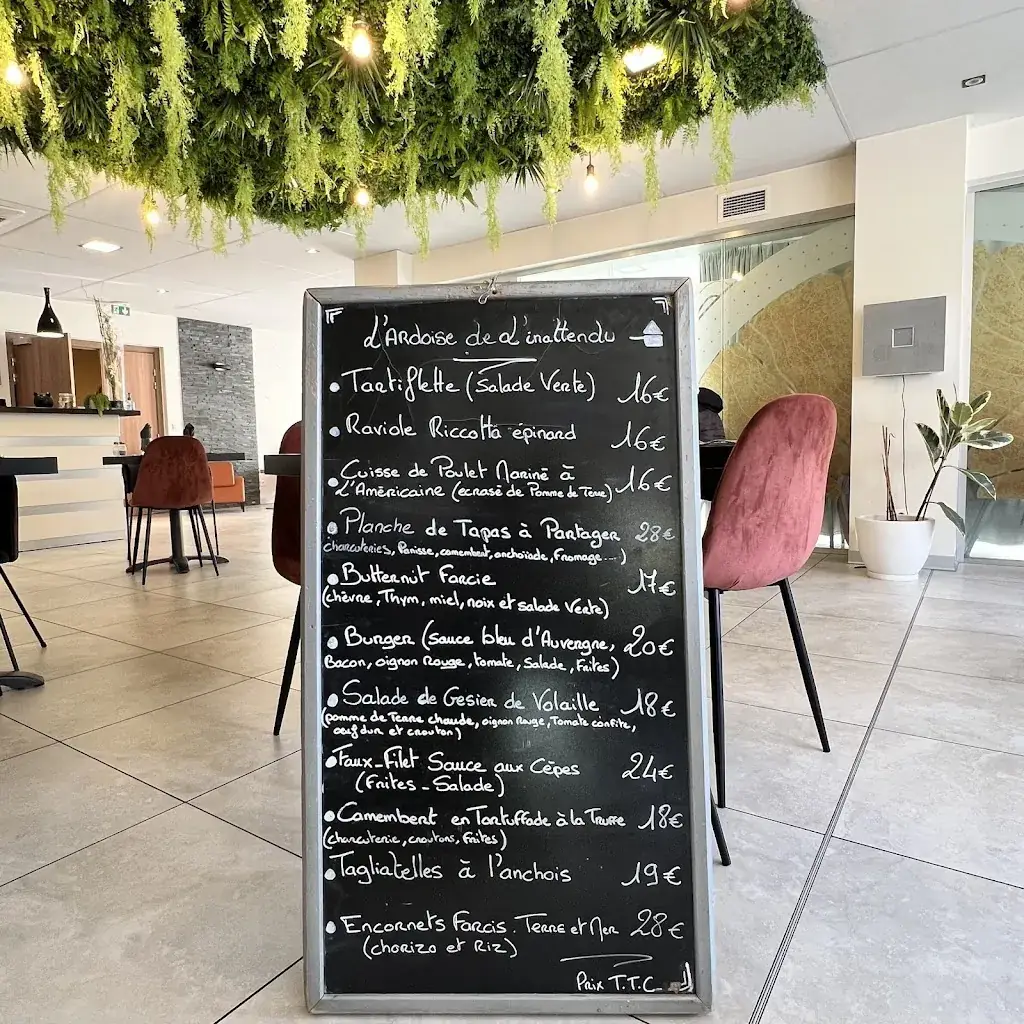 L'Ardoise de L'inattendu
• Tartiflette (Salade Verte) 16€
• Raviole Riccotta épinard 16€
• Cuisse de Poulet Mariné à
L'Américaine (ecrasé de Pomme de Terre) 16€
• Planche de Tapas à Partager 28€
(charcuteries, Panisse, camembert, anchoïade, Fromage...)
• Butternut Farcie 17€
(chèvre, Thym, miel, noix et salade Verte)
• Burger (sauce bleu d'Auvergne, 20€
Bacon, oignon Rouge, tomate, Salade, Frites)
• Salade de Gesier de Volaille 18€
(pomme de Terre chaude, oignon Rouge, Tomate confite,
oeuf dur et crouton)
• Faux-filet Sauce aux Cèpes 24€
(Frites - Salade)
• Camembert en Tartuffade à la Truffe 18€
(charcuterie, croutons, Frites)
• Tagliatelles à l'anchois 19€
• Encornets Farcis. Terre et Mer 28€
(chorizo et Riz)
Prix T.T.C